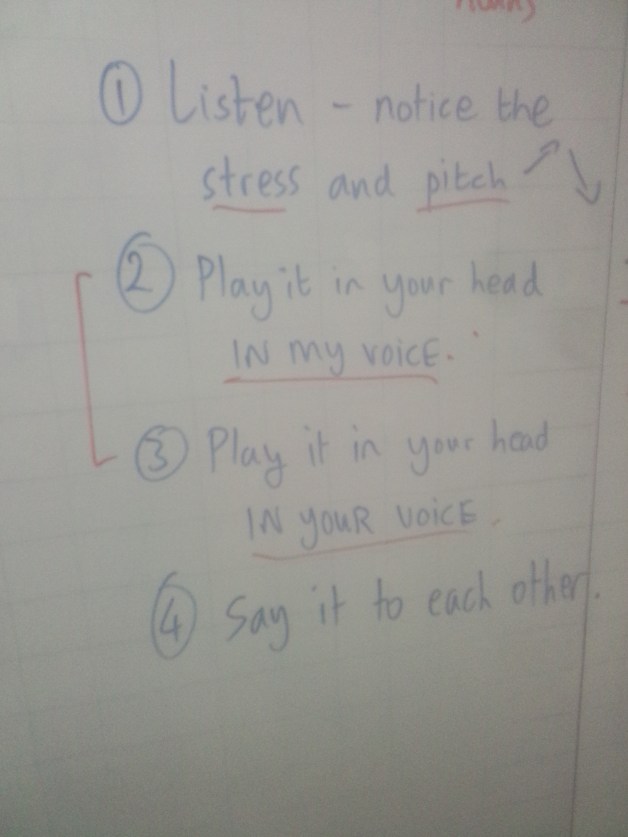 ① Listen - notice the
stress and pitch ↗↘
② Play it in your head
IN my voicE.
③ Play it in your head
IN youR voicE.
④ Say it to each other.